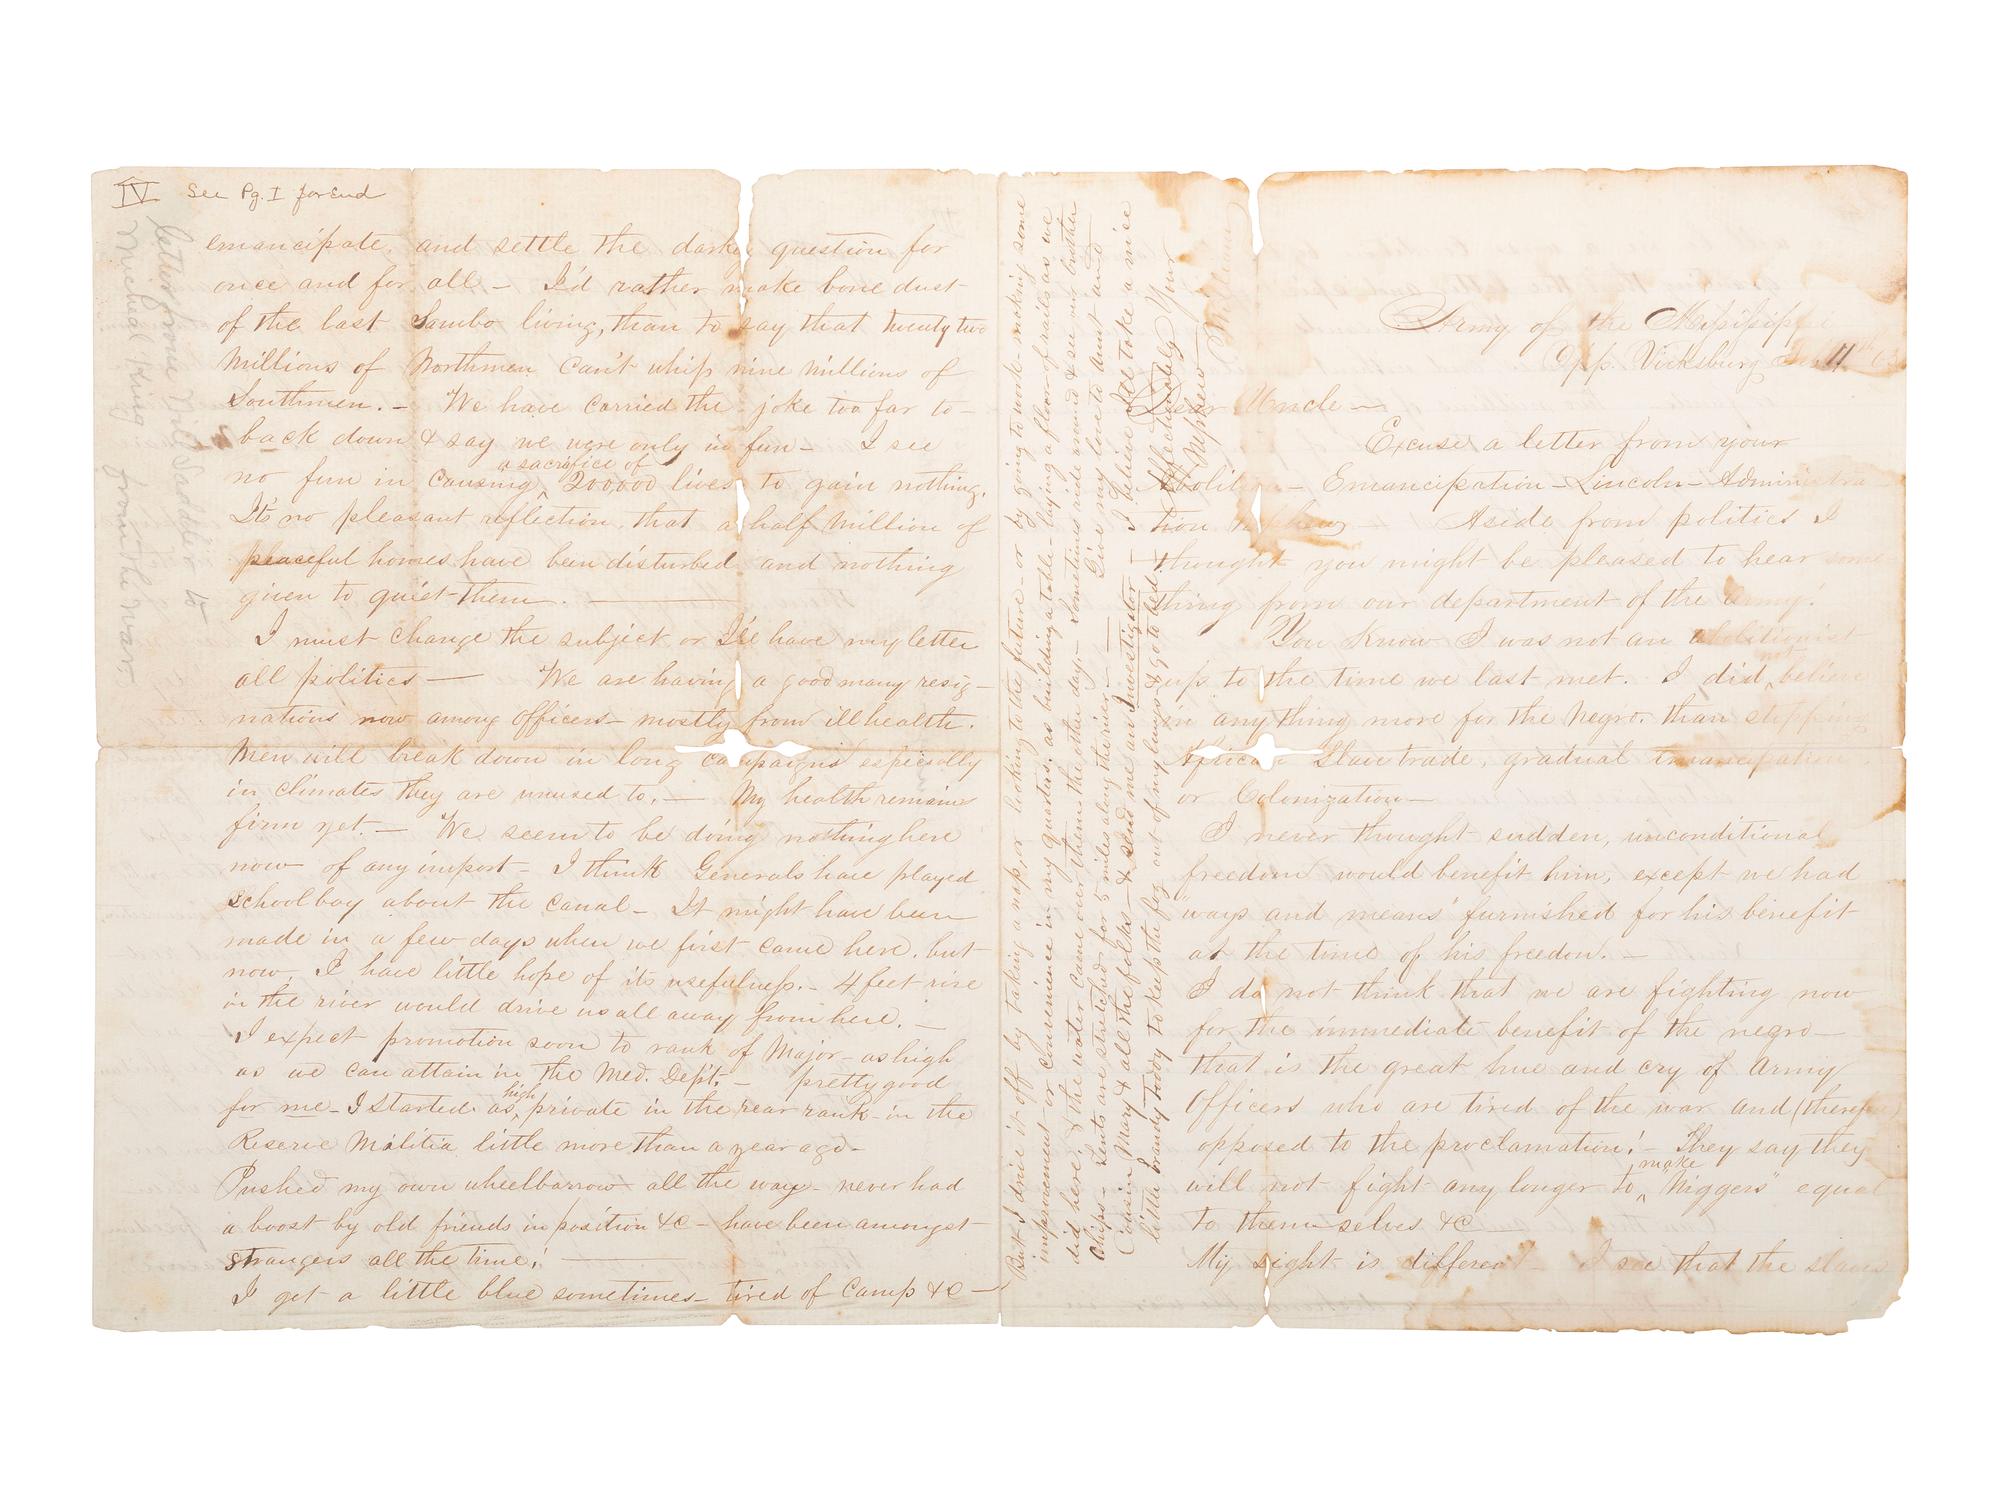 IV See Pg. I for End
letter from Will Saddler to
Micheal King - from the war.
emancipate. and settle the darky question for
once and for all - I'd rather make bone dust
of the last Sambo living, than to say that twenty two
Millions of Northmen Can't whip nine Millions of
Southmen. - We have carried the joke too far to -
back down & say we were only in fun - I see
a sacrifice of
no fun in causing ^ 200,000 lives to gain nothing.
It's no pleasant reflection, that a half Million of
peaceful homes have been disturbed and nothing
given to quiet them. —
I must change the subject or I'll have my letter
all politics — We are having a good many resig-
nations now among officers - mostly from ill health.
Men will break down in long campaigns especially
in climates they are unused to. — My health remains
firm yet. — We seem to be doing nothing here
now of any import - I think Generals have played
School boy about the Canal - It might have been
made in a few days when we first came here. but
now, I have little hope of its usefulness. - 4 feet rise
in the river would drive us all away from here. —
I expect promotion soon to rank of Major - as high
as we can attain in the Med. Dept. - pretty good
high
for me - I started as ^ private in the rear rank - in the
Reserve Militia, little more than a year ago -
Pushed my own wheelbarrow all the way - never had
a boost by old friends in position &c - have been amongst
strangers all the time! —
I get a little blue sometimes - tired of Camp &c —
But I drive it off by taking a nap or looking to the future - or by going to work - making some
improvement or convenience in my quarters, as building a table - laying a floor of rails as we
did here, & the water came over them the other day. - Sometimes ride around & see our brother
Chips - Tents are stretched for 5 miles along the river - — Give my love to Aunt and
Cousin Mary & all the folks - & send me an Investigator - I believe I'll take a nice
little brandy toddy to keep the fog out of my lungs & go to bed. Affectionately Your
Nephew William
Army of the Missisippi
Opp. Vicksburg 11th 63
Dear Uncle —
Excuse a letter from your
Abolition - Emancipation - Lincoln - Administra-
tion Nephew — Aside from politics I
thought you might be pleased to hear some
thing from our department of the army.
You Know I was not an abolitionist
not
up to the time we last met. I did ^ believe
in any thing more for the Negro. than stopping
African Slave trade, gradual emancipation
or Colonization —
I never thought sudden, unconditional
freedom would benefit him, except we had
"ways and means" furnished for his benefit
at the time of his freedom. —
I do not think that we are fighting now
for the immediate benefit of the negro -
that is the great hue and cry of Army
Officers who are tired of the war and (therefore)
opposed to the proclamation! - They say they
make
will not fight any longer to ^ "Niggers" equal
to themselves &c
My sight is different - I see that the slaves